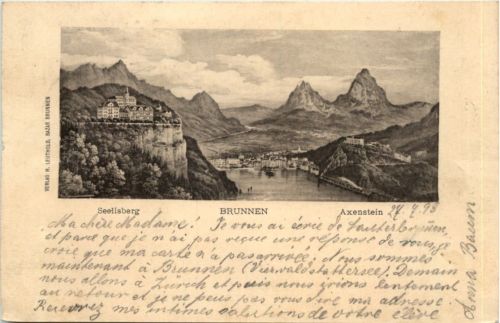 VERLAG R. LEUTHOLD, BAZAR BRUNNEN
Seelisberg BRUNNEN Axenstein
27. 7. 93
Ma chère Madame! Je vous ai écrie de Lauterbrunnen,
et parce que je n'ai pas reçue une réponse de vous, je
croie que ma carte n'a pas arrivée. Nous sommes
maintenant à Brunnen (Vierwaldstättersee). Demain
nous allons à Zurch et puis nous irions lentement
au retour et je ne peux pas vous dire ma adresse.
Recevez mes intimes salutations de votre élève
Anna